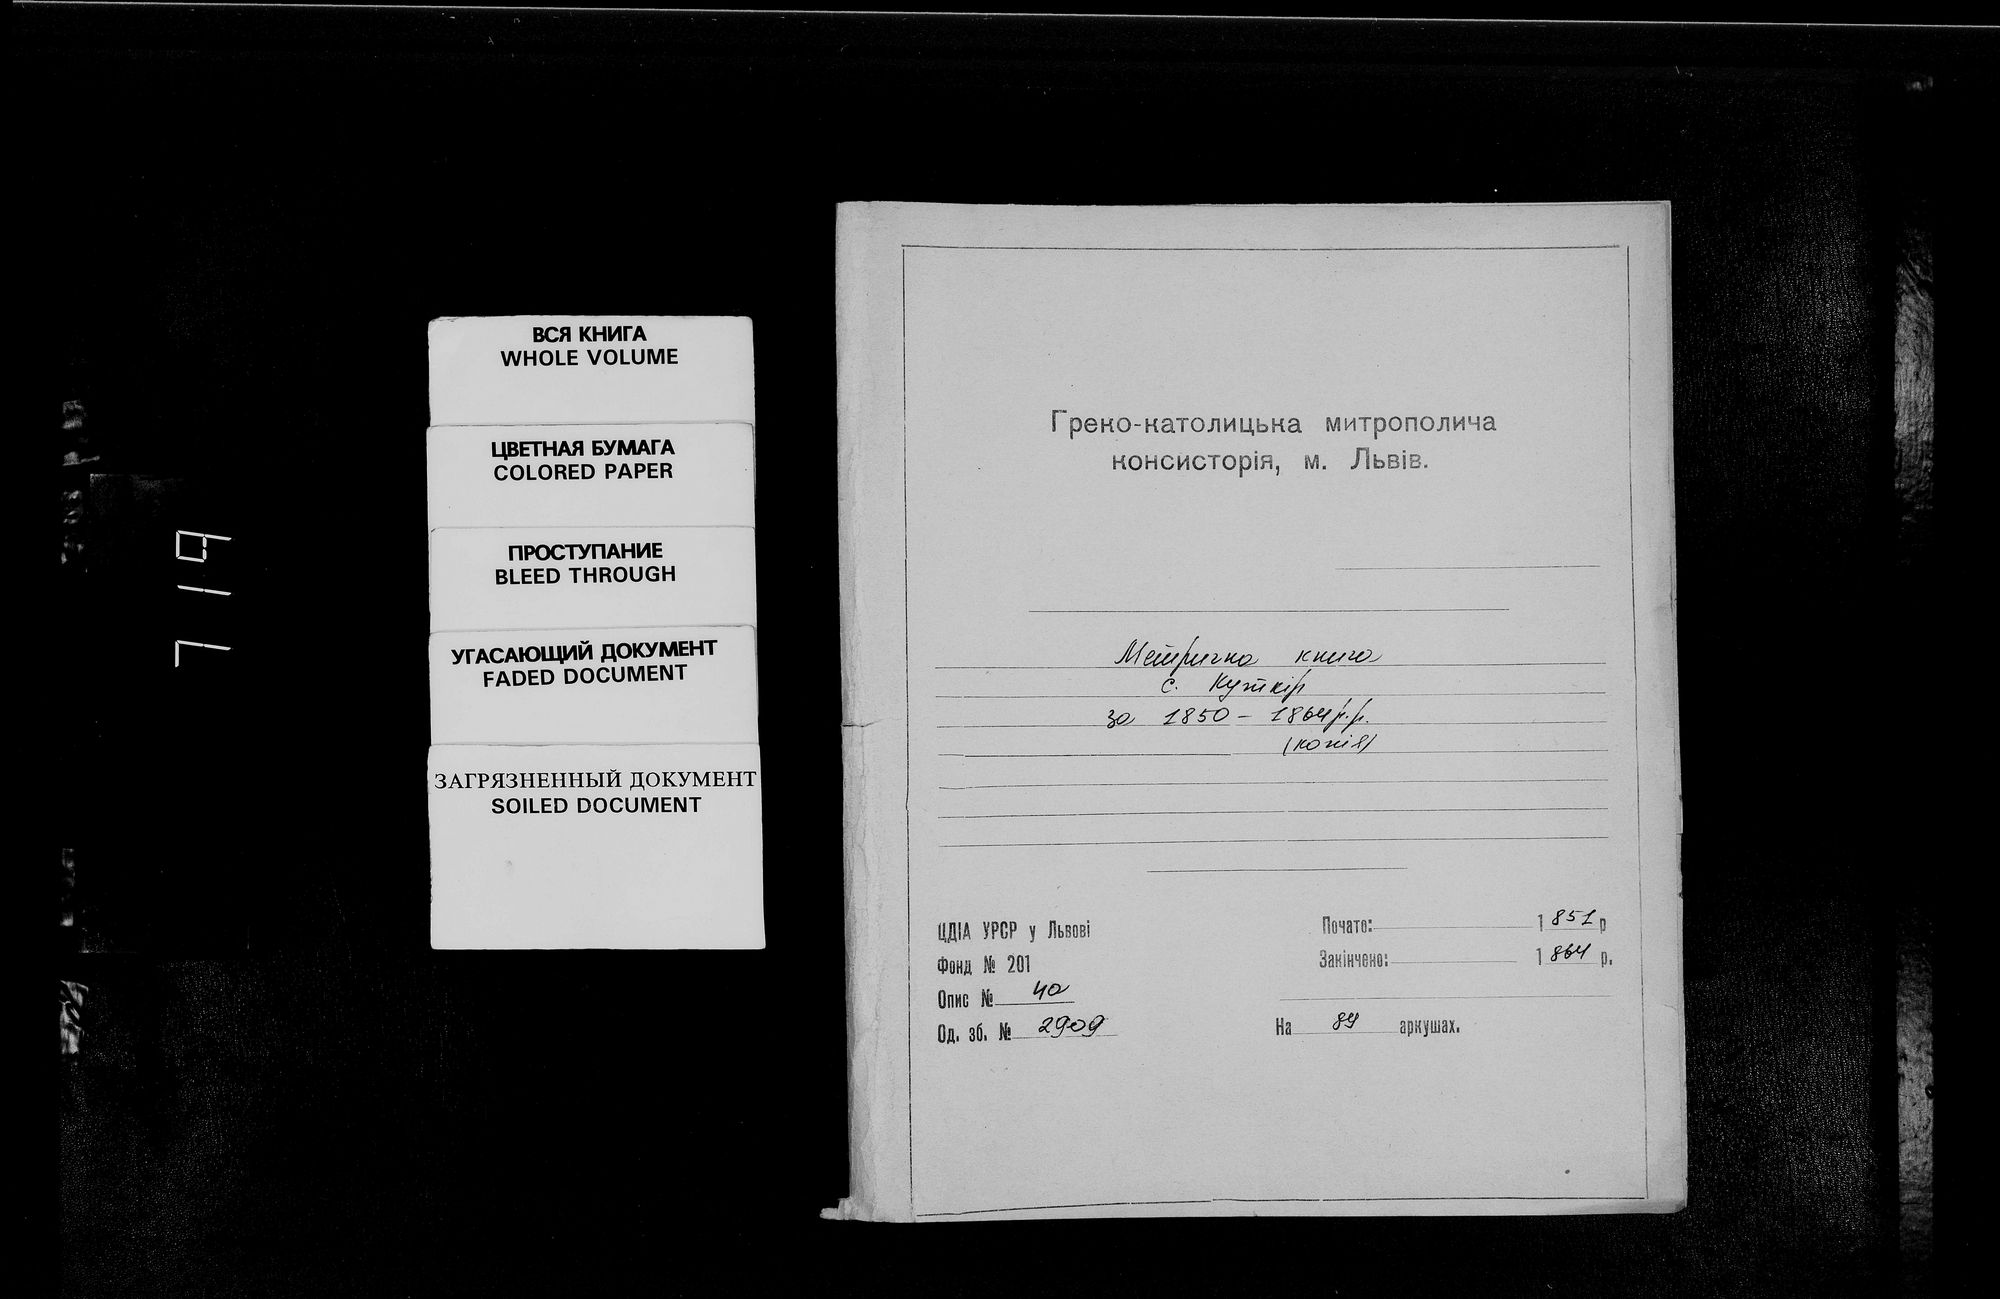 719
ВСЯ КНИГА
WHOLE VOLUME
ЦВЕТНАЯ БУМАГА
COLORED PAPER
ПРОСТУПАНИЕ
BLEED THROUGH
УГАСАЮЩИЙ ДОКУМЕНТ
FADED DOCUMENT
ЗАГРЯЗНЕННЫЙ ДОКУМЕНТ
SOILED DOCUMENT
Греко-католицька митрополича
консисторія, м. Львів.
Метрична книга
с. Куткір
за 1850 - 1864 р.р.
(копія)
ЦДІА УРСР у Львові
Фонд № 201
Опис № 40
Од. зб. № 2909
Почато: 1851 р
Закінчено: 1864 р.
На 84 аркушах.